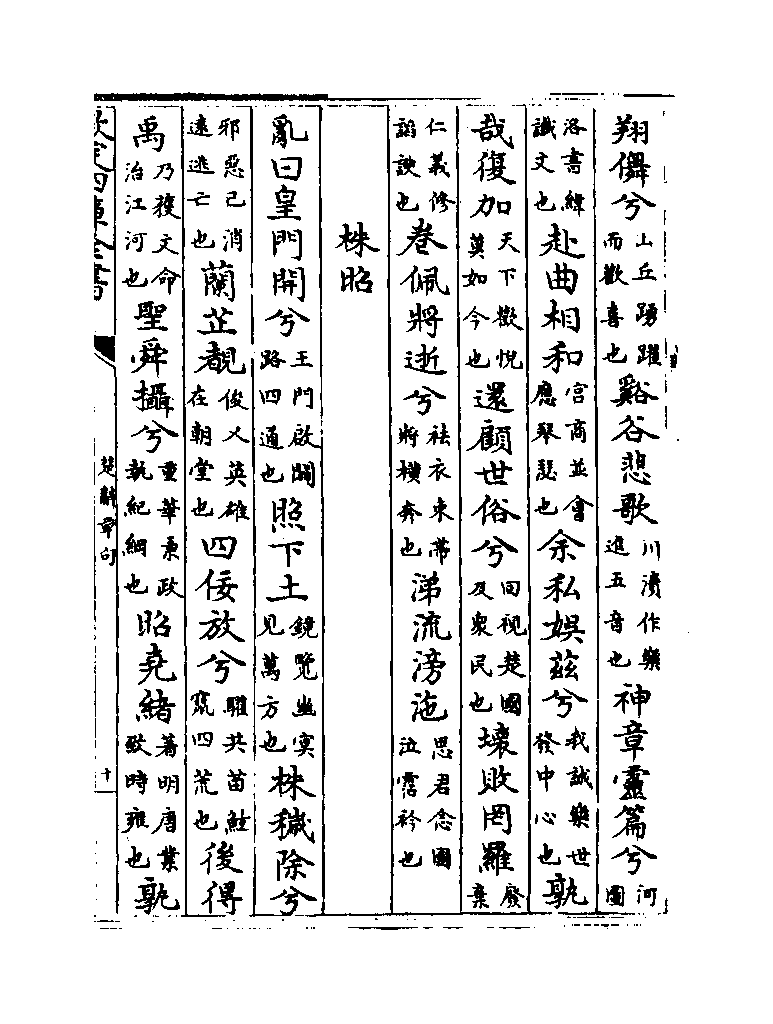 翔儛兮山丘踴躍而歡喜也谿谷悲歌川瀆作樂進五音也神章靈篇兮河圖
洛書緯讖文也赴曲相和宮商並會應琴瑟也余私娛茲兮我誠樂世發中心也孰
哉復加天下歡悅莫如今也還顧世俗兮回視楚國及衆民也壞敗罔羅廢棄
仁義修諂諛也卷佩將逝兮袪衣束帶將橫奔也涕流滂沲思君念國泣霑衿也
株昭
亂曰皇門開兮王門啟闢路四通也照下土鏡覽幽冥見萬方也株穢除兮
邪惡已消遠逃亡也蘭芷覩俊乂英雄在朝堂也四佞放兮驩共苗鮌竄四荒也後得
禹乃獲文命治江河也聖舜攝兮重華秉政執紀綱也昭堯緒著明唐業致時雍也孰
欽定四庫全書
楚辭章句
十